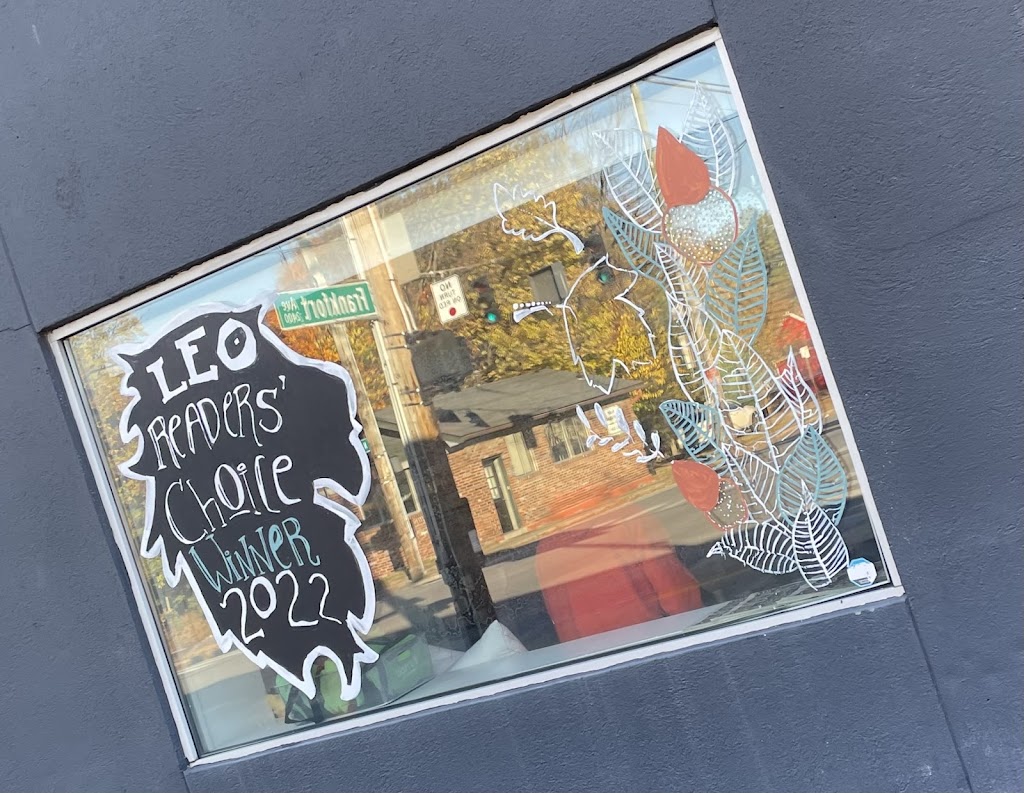 LEO
READERS'
CHOICE
WINNER
2022
Frankfort Ave
2400
NO
TURN
ON RED